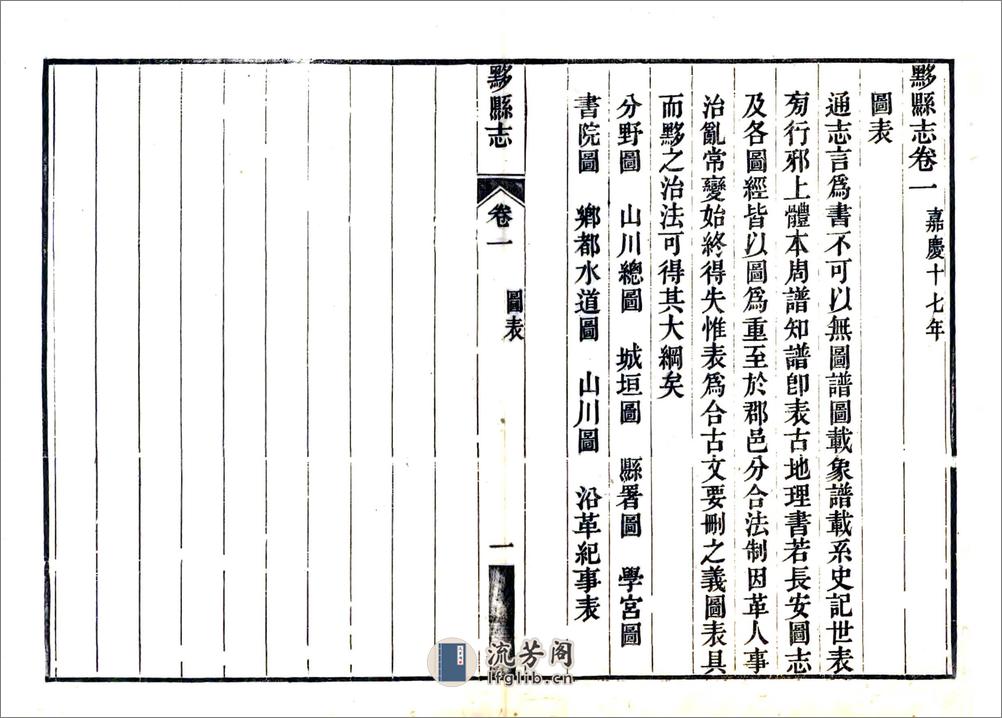 黟縣志卷一　嘉慶十七年
圖表
通志言爲書不可以無圖譜圖載象譜載系史記世表
旁行邪上體本周譜知譜卽表古地理書若長安圖志
及各圖經皆以圖爲重至於郡邑分合法制因革人事
治亂常變始終得失惟表爲合古文要刪之義圖表具
而黟之治法可得其大綱矣
分野圖　山川總圖　城垣圖　縣署圖　學宮圖
書院圖　鄉都水道圖　山川圖　沿革紀事表
黟縣志　卷一　圖表　一
流芳阁
lfglib.cn